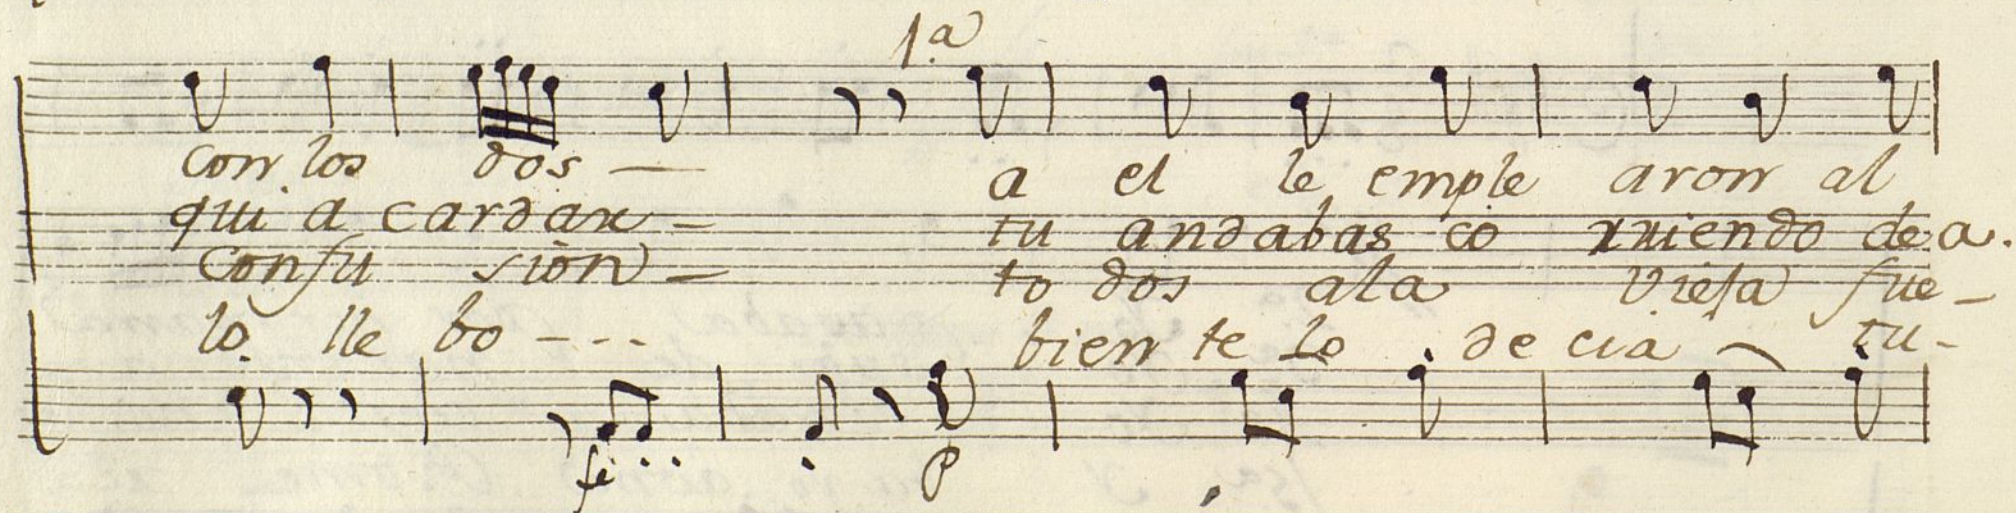 1.a
con los dos —
a el le emple aron al
qui a cardar —
tu andabas co rriendo de a.
Confu sion —
to dos ala vieja fue -
lo lle bo - - -
bien te lo de cia tu -
fe
p